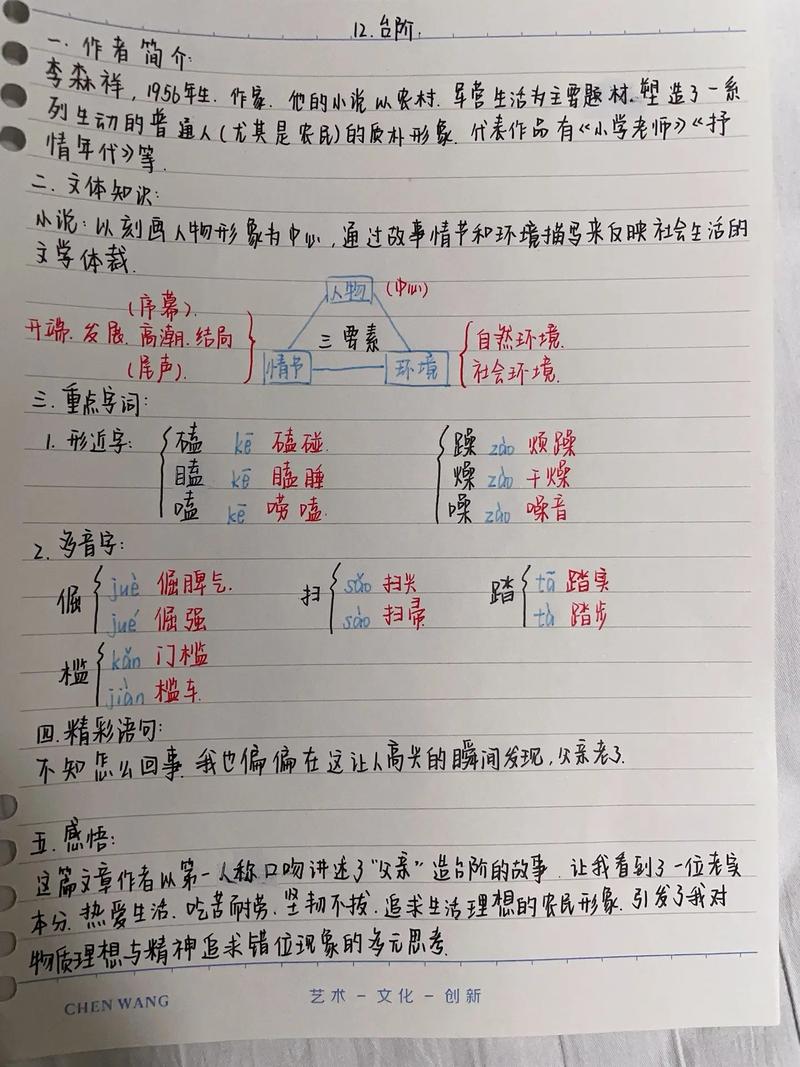 12. 台阶.
一. 作者简介:
李森祥, 1956年生. 作家. 他的小说以农村. 军营生活为主要题材. 塑造了一系
列生动的普通人(尤其是农民)的质朴形象. 代表作品有《小学老师》《抒
情年代》等.
二. 文体知识:
小说: 以刻画人物形象为中心, 通过故事情节和环境描写来反映社会生活的
文学体裁.
人物 (中心)
(序幕).
开端. 发展. 高潮. 结局
(尾声).
三要素
情节 环境
自然环境.
社会环境.
三. 重点字词:
1. 形近字:
磕 kē 磕碰.
瞌 kē 瞌睡
嗑 kē 唠嗑.
躁 zào 烦躁
燥 zào 干燥
噪 zào 噪音
2. 多音字:
倔 juè 倔脾气.
jué 倔强
扫 sǎo 扫兴
sào 扫帚
踏 tā 踏实
tà 踏步
槛 kǎn 门槛
jiàn 槛车.
四. 精彩语句:
不知怎么回事. 我也偏偏在这让人高兴的瞬间发现, 父亲老了.
五. 感悟:
这篇文章作者以第一人称口吻讲述了“父亲”造台阶的故事. 让我看到了一位老实
本分. 热爱生活. 吃苦耐劳. 坚韧不拔. 追求生活理想的农民形象. 引发了我对
物质理想与精神追求错位现象的多元思考.
CHEN WANG
艺术 - 文化 - 创新